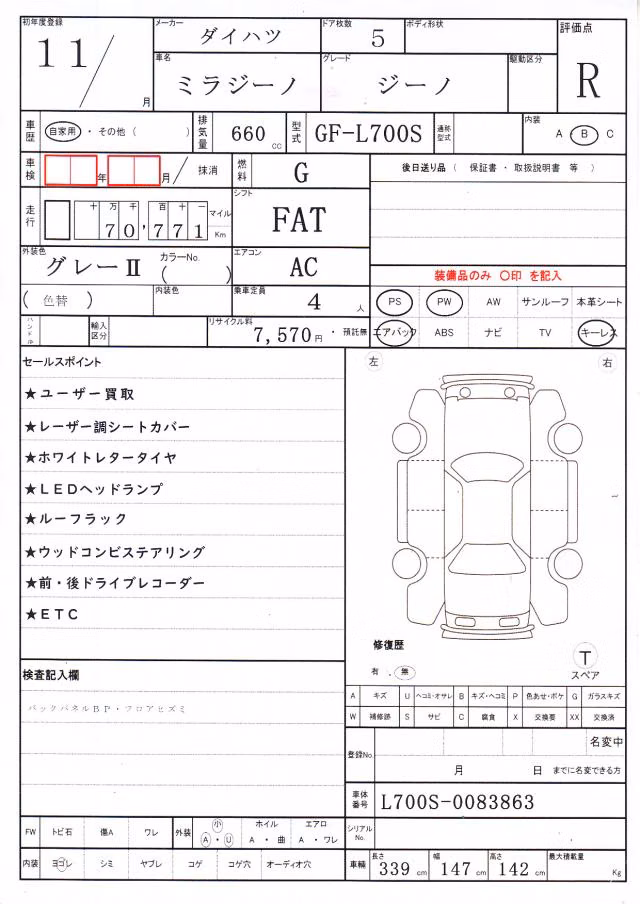 初年度登録
11/
月
メーカー
ダイハツ
ドア枚数
5
ボディ形状
評価点
R
車名
ミラジーノ
グレード
ジーノ
駆動区分
車歴
自家用 ・ その他 ( )
排気量
660 cc
型式
GF-L700S
通称型式
内装
A ・ B C
車検
年 月 / 抹消
燃料
G
後日送り品 ( 保証書 ・ 取扱説明書 等 )
走行
十 万 千 百 十 一
70,771
マイル
Km
シフト
FAT
外装色
グレーⅡ
カラーNo.
( )
エアコン
AC
装備品のみ 〇印 を記入
( 色替 )
内装色
乗車定員
4 人
PS PW AW サンルーフ 本革シート
ハンドル
輸入区分
リサイクル料
7,570円 ・ 預託無
エアバック ABS ナビ TV キーレス
セールスポイント
★ユーザー買取
★レーザー調シートカバー
★ホワイトレタータイヤ
★LEDヘッドランプ
★ルーフラック
★ウッドコンビステアリング
★前・後ドライブレコーダー
★ETC
左
右
修復歴
有 . 無
T
スペア
検査記入欄
バックパネルBP・フロアヒズミ
A キズ U ヘコミ・オサレ B キズ・ヘコミ P 色あせ・ボケ G ガラスキズ
W 補修跡 S サビ C 腐食 X 交換要 XX 交換済
登録No.
名変中
月 日 までに名変できる方
車体番号
L700S-0083863
シリアルNo.
FW トビ石 傷A ワレ
外装 小 A ・ U
ホイル A ・ 曲
エアロ A ・ ワレ
内装 ヨゴレ シミ ヤブレ コゲ コゲ穴 オーディオ穴
車輌
長さ 339 cm
幅 147 cm
高さ 142 cm
最大積載量 Kg